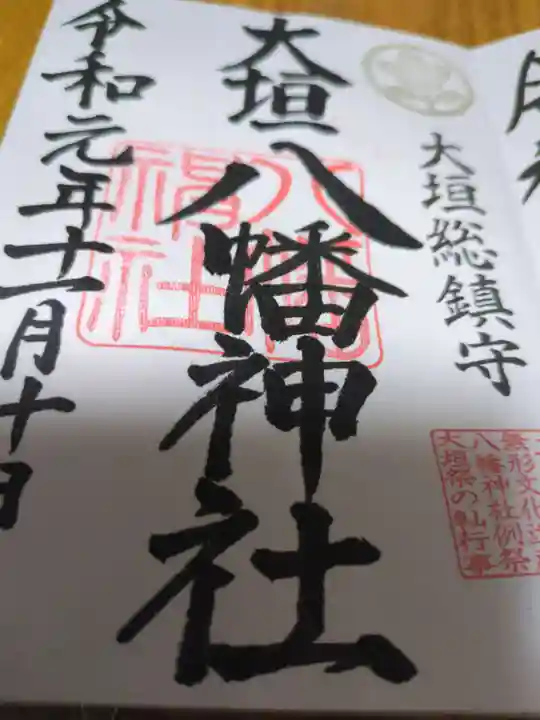 大垣総鎮守
無形文化遺産
八幡神社例祭
大垣祭の䡄行事
大垣八幡神社
八幡神社
令和元年十一月十日